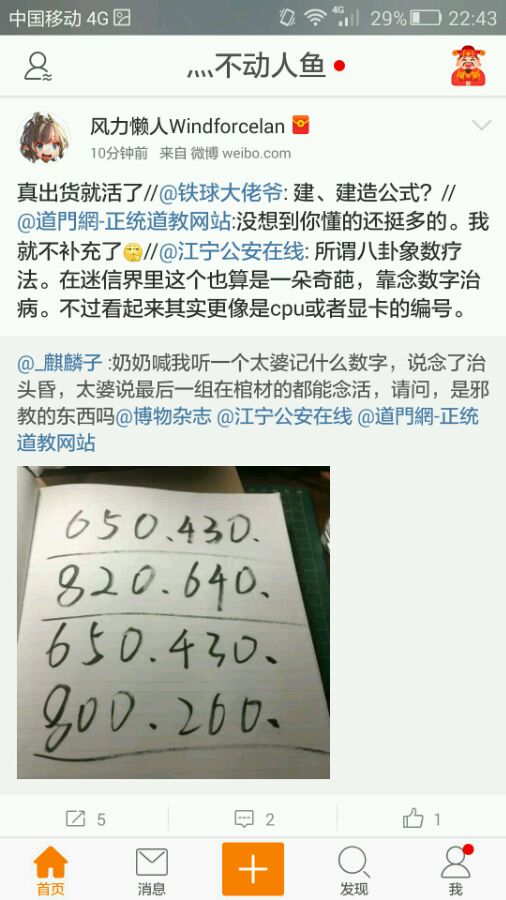 中国移动 4G
4G
29%
22:43
灬不动人鱼
风力懒人Windforcelan
10分钟前 来自 微博 weibo.com
真出货就活了//@铁球大佬爷: 建、建造公式？//
@道門網-正统道教网站:没想到你懂的还挺多的。我
就不补充了//@江宁公安在线: 所谓八卦象数疗
法。在迷信界里这个也算是一朵奇葩，靠念数字治
病。不过看起来其实更像是cpu或者显卡的编号。
@_麒麟子 :奶奶喊我听一个太婆记什么数字，说念了治
头昏，太婆说最后一组在棺材的都能念活，请问，是邪
教的东西吗@博物杂志 @江宁公安在线 @道門網-正统
道教网站
650.430.
820.640.
650.430.
800.200.
5
2
1
首页
消息
发现
我